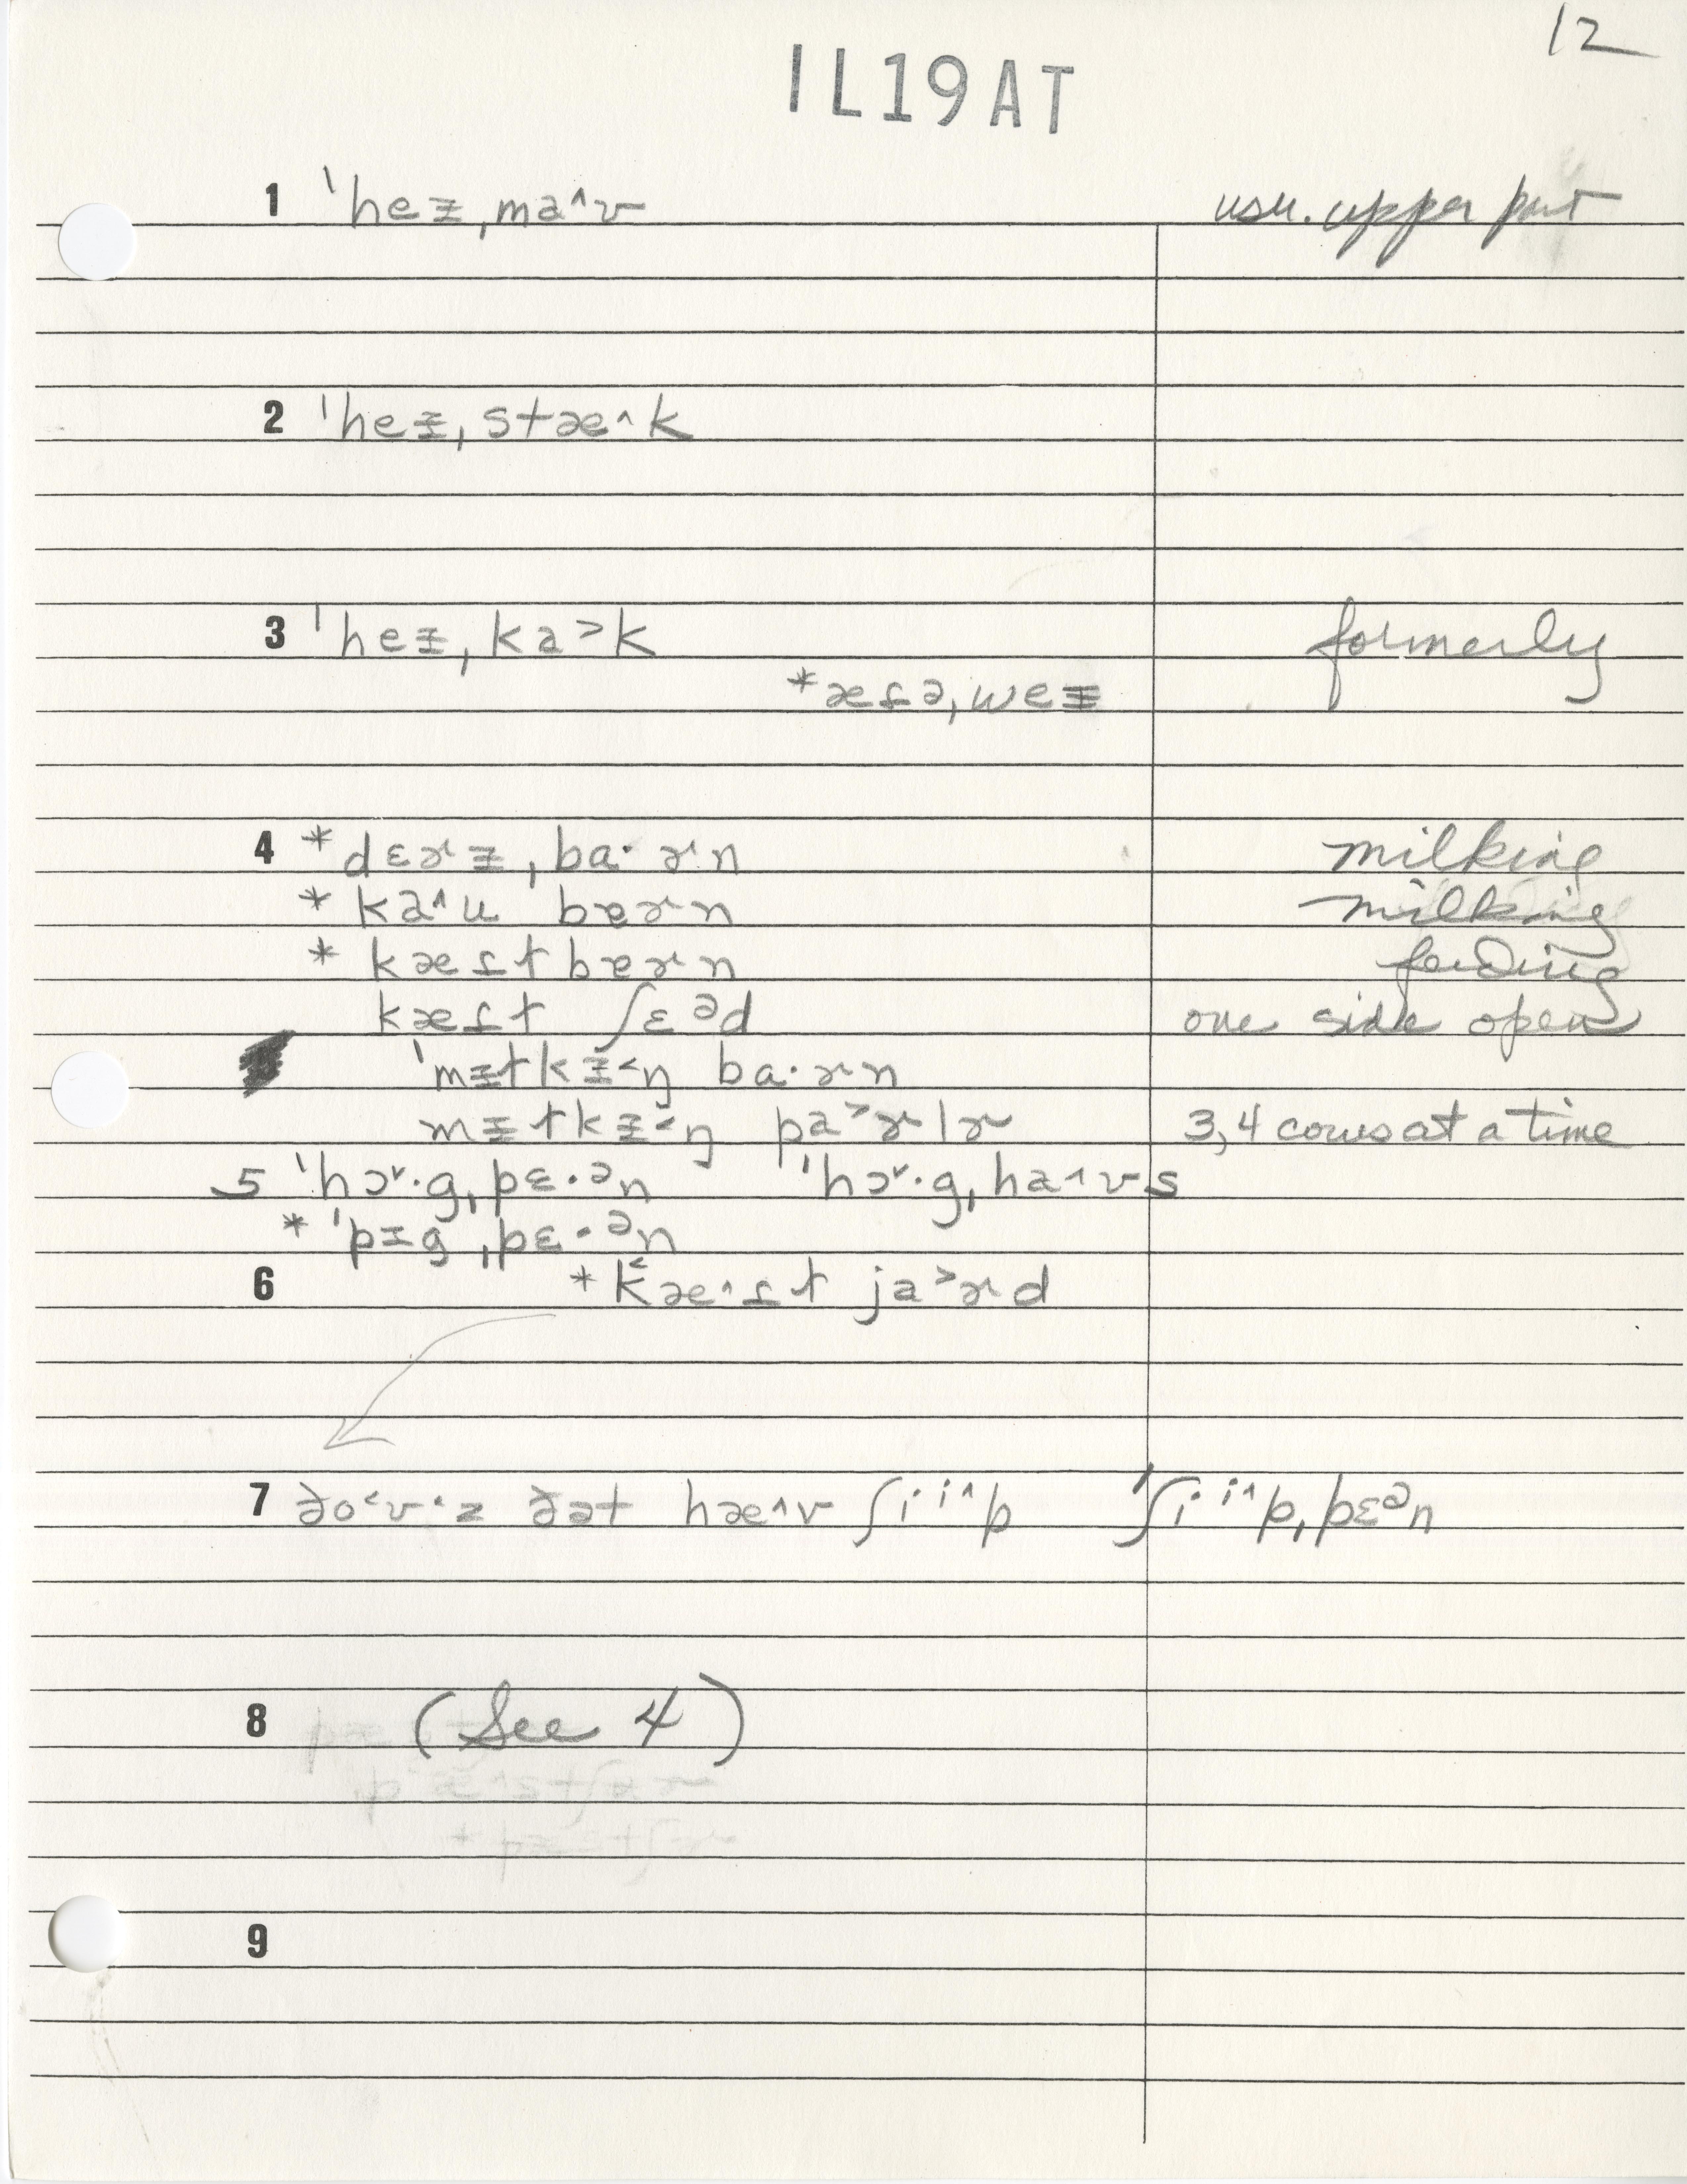 12
IL19AT
1 ˈheᵻˌma^ʊ usu. upper part
2 ˈheᵻˌstæ^k
3 ˈheᵻˌka˃k formerly
*æɾəˌweᵻ
4 *dɛɚᵻˌba·ɚn milking
*ka^u bɐɚn milking
*kæɾɫ bɐɚn feeding
kæɾɫ ʃɛᵊd one side open
ˈmᵻɫkᵻ˂ŋ ba·ɚn
mᵻɫkᵻ˂ŋ pa˃ɚlɚ 3,4 cows at a time
5 ˈhɔ˅·gˌpɛ·ᵊn ˈhɔ˅·gˌha^ʊs
*ˈpɪgˌpɛ·ᵊn
6 *k˂æ^ɾɫ ja˃ɚd
7 ðo˂ʊ˂z ðət hæ^v ʃiⁱ^p ˈʃiⁱ^pˌpɛᵊn
8 (See 4)
9